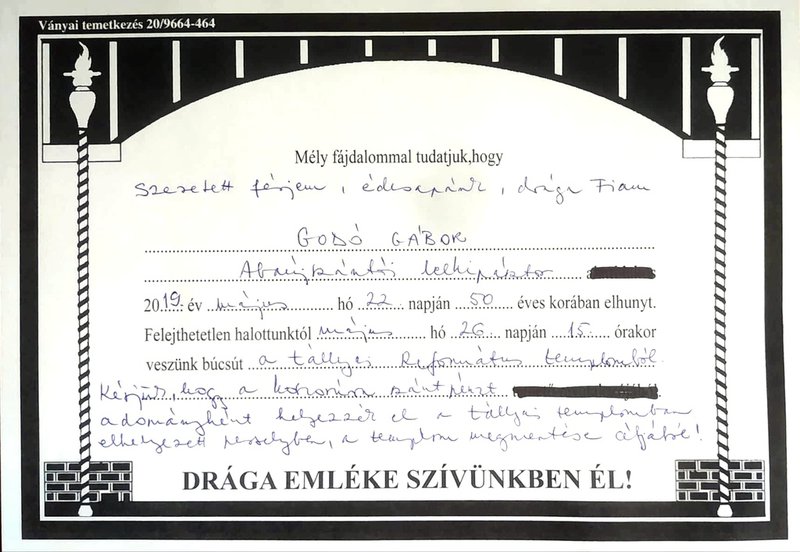 Ványai temetkezés 20/9664-464
Mély fájdalommal tudatjuk,hogy
Szeretett férjem, édesapánk, drága Fiam
GODÓ GÁBOR
Abaújszántói lelkipásztor
2019 év május hó 22. napján 50 éves korában elhunyt.
Felejthetetlen halottunktól május hó 26 napján 15. órakor
veszünk búcsút a tállyai Református templomból
Kérjük, hogy a koszorúra szánt részt
adományként helyezzék el a tállyai templomban
elhelyezett perselyben, a templom megmentése céljából!
DRÁGA EMLÉKE SZÍVÜNKBEN ÉL!